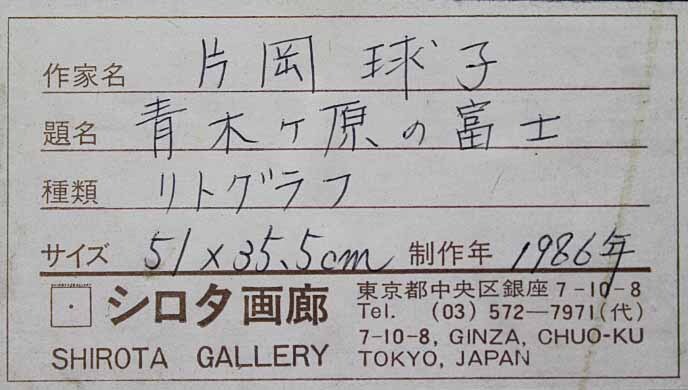 作家名 片岡 球子
題名 青木ケ原の富士
種類 リトグラフ
サイズ 51×35.5cm 制作年 1986年
シロタ画廊
SHIROTA GALLERY
東京都中央区銀座7-10-8
Tel. (03) 572—7971(代)
7-10-8, GINZA, CHUO-KU
TOKYO, JAPAN